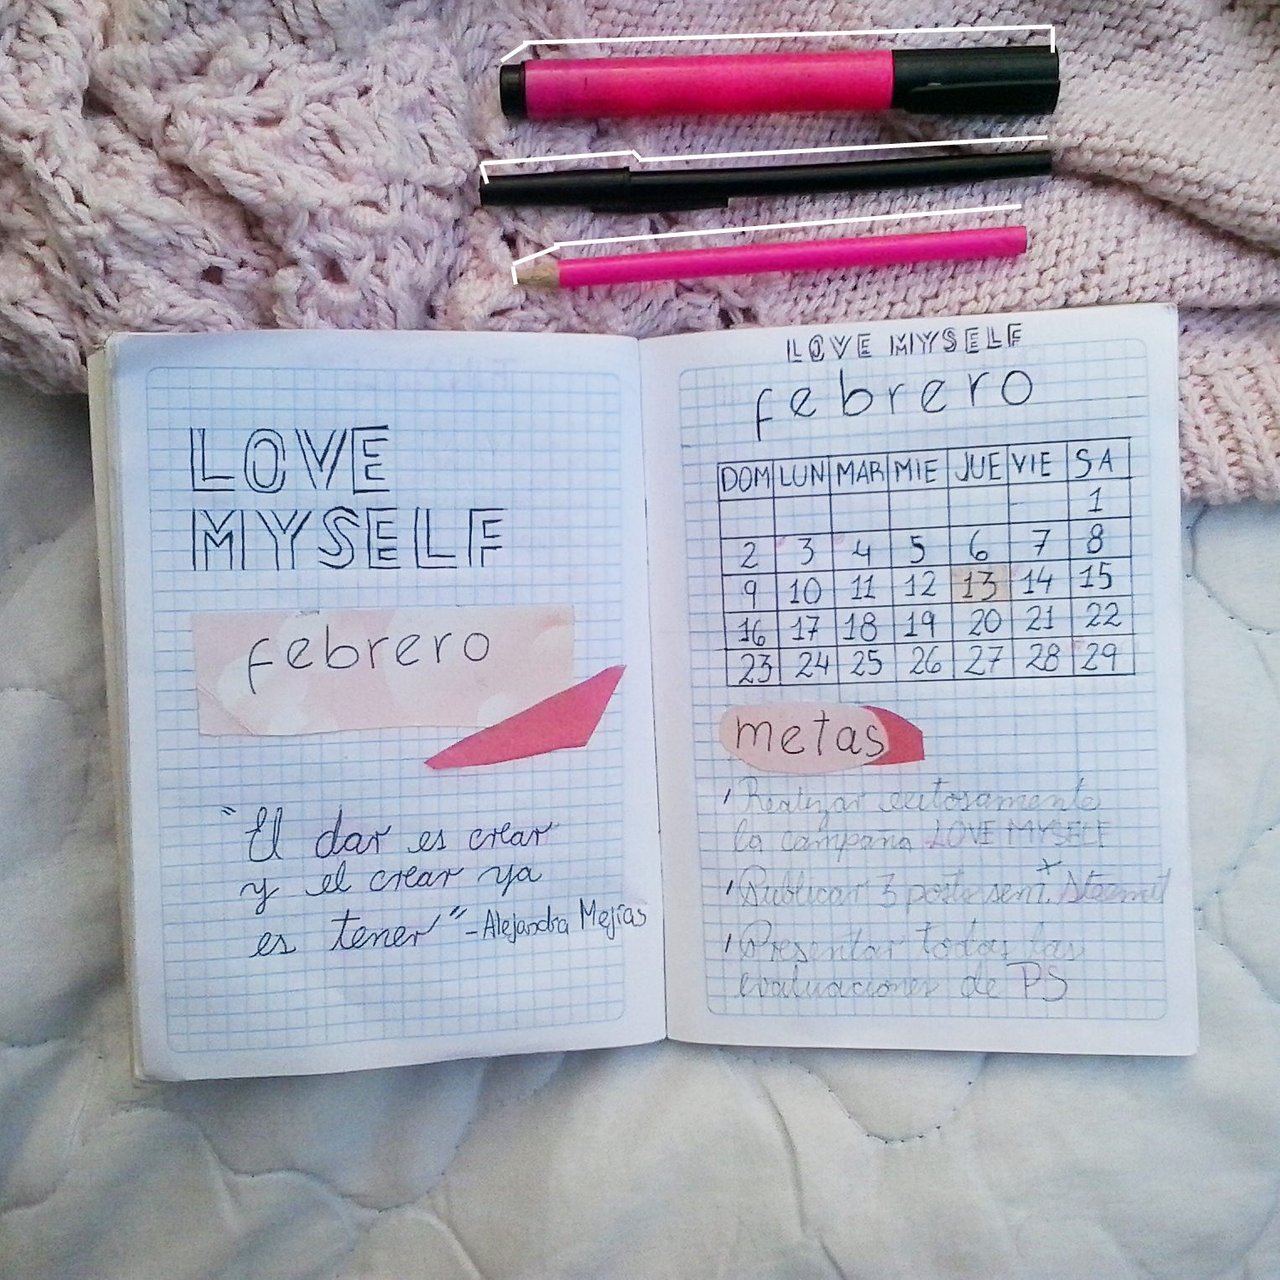 LOVE
MYSELF
febrero
"El dar es crear
y el crear ya
es tener" - Alejandra Mejías
LOVE MYSELF
febrero
DOM LUN MAR MIE JUE VIE SA
1
2 3 4 5 6 7 8
9 10 11 12 13 14 15
16 17 18 19 20 21 22
23 24 25 26 27 28 29
metas
' Realizar exitosamente
la campaña LOVE MYSELF
' Publicar 3 posts x sem. Steemit
' Presentar todas las
evaluaciones de PS